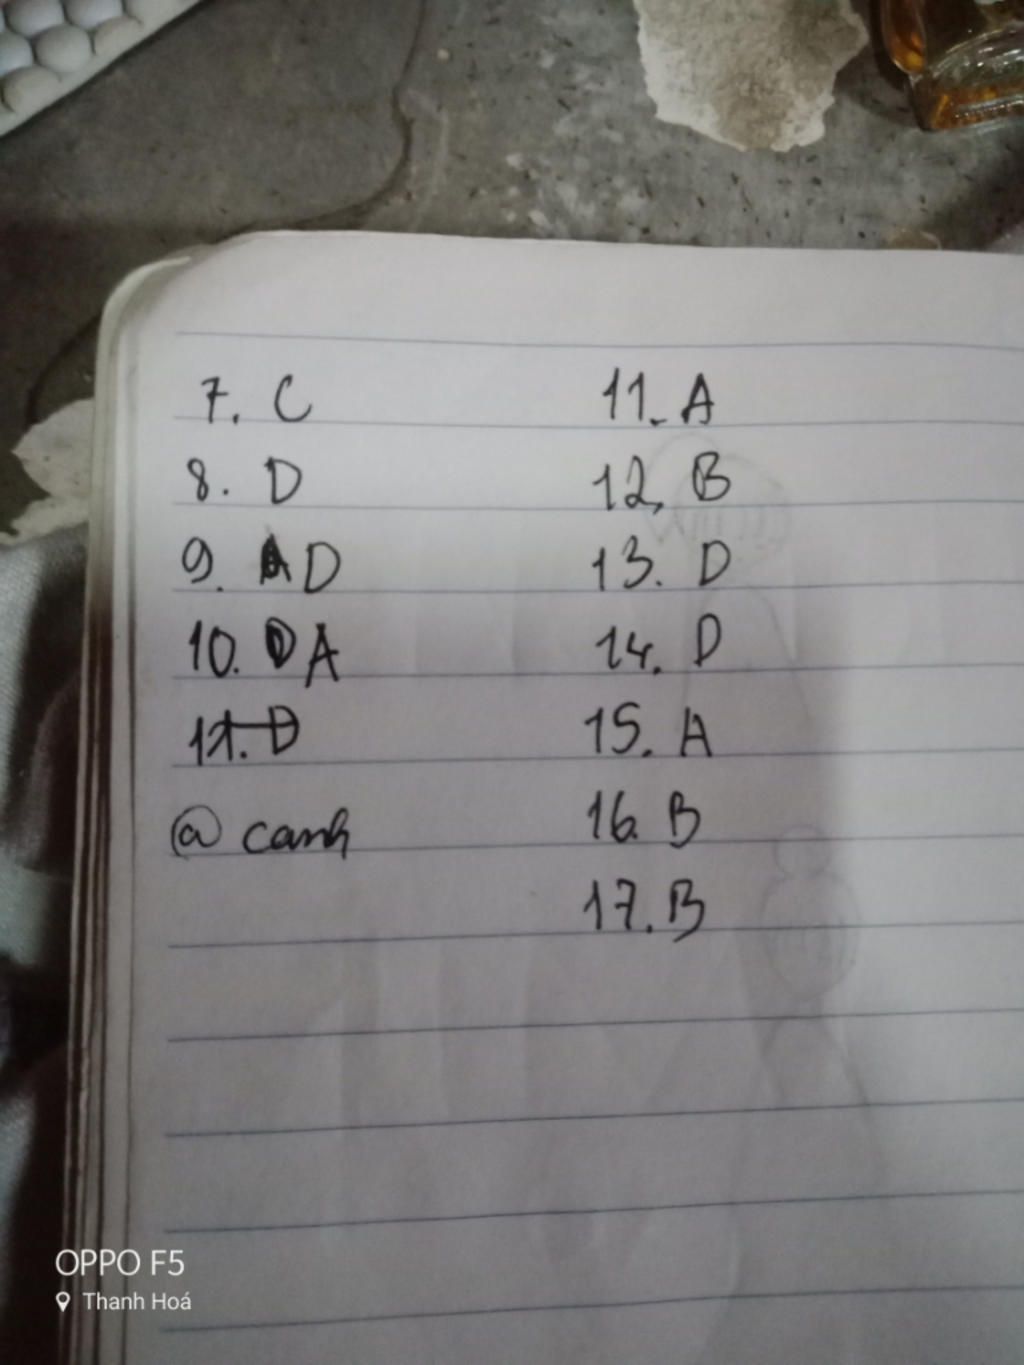 7. C
8. D
9. A D
10. D A
11. D
@ canh
11. A
12. B
13. D
14. D
15. A
16. B
17. B
OPPO F5
Thanh Hoá